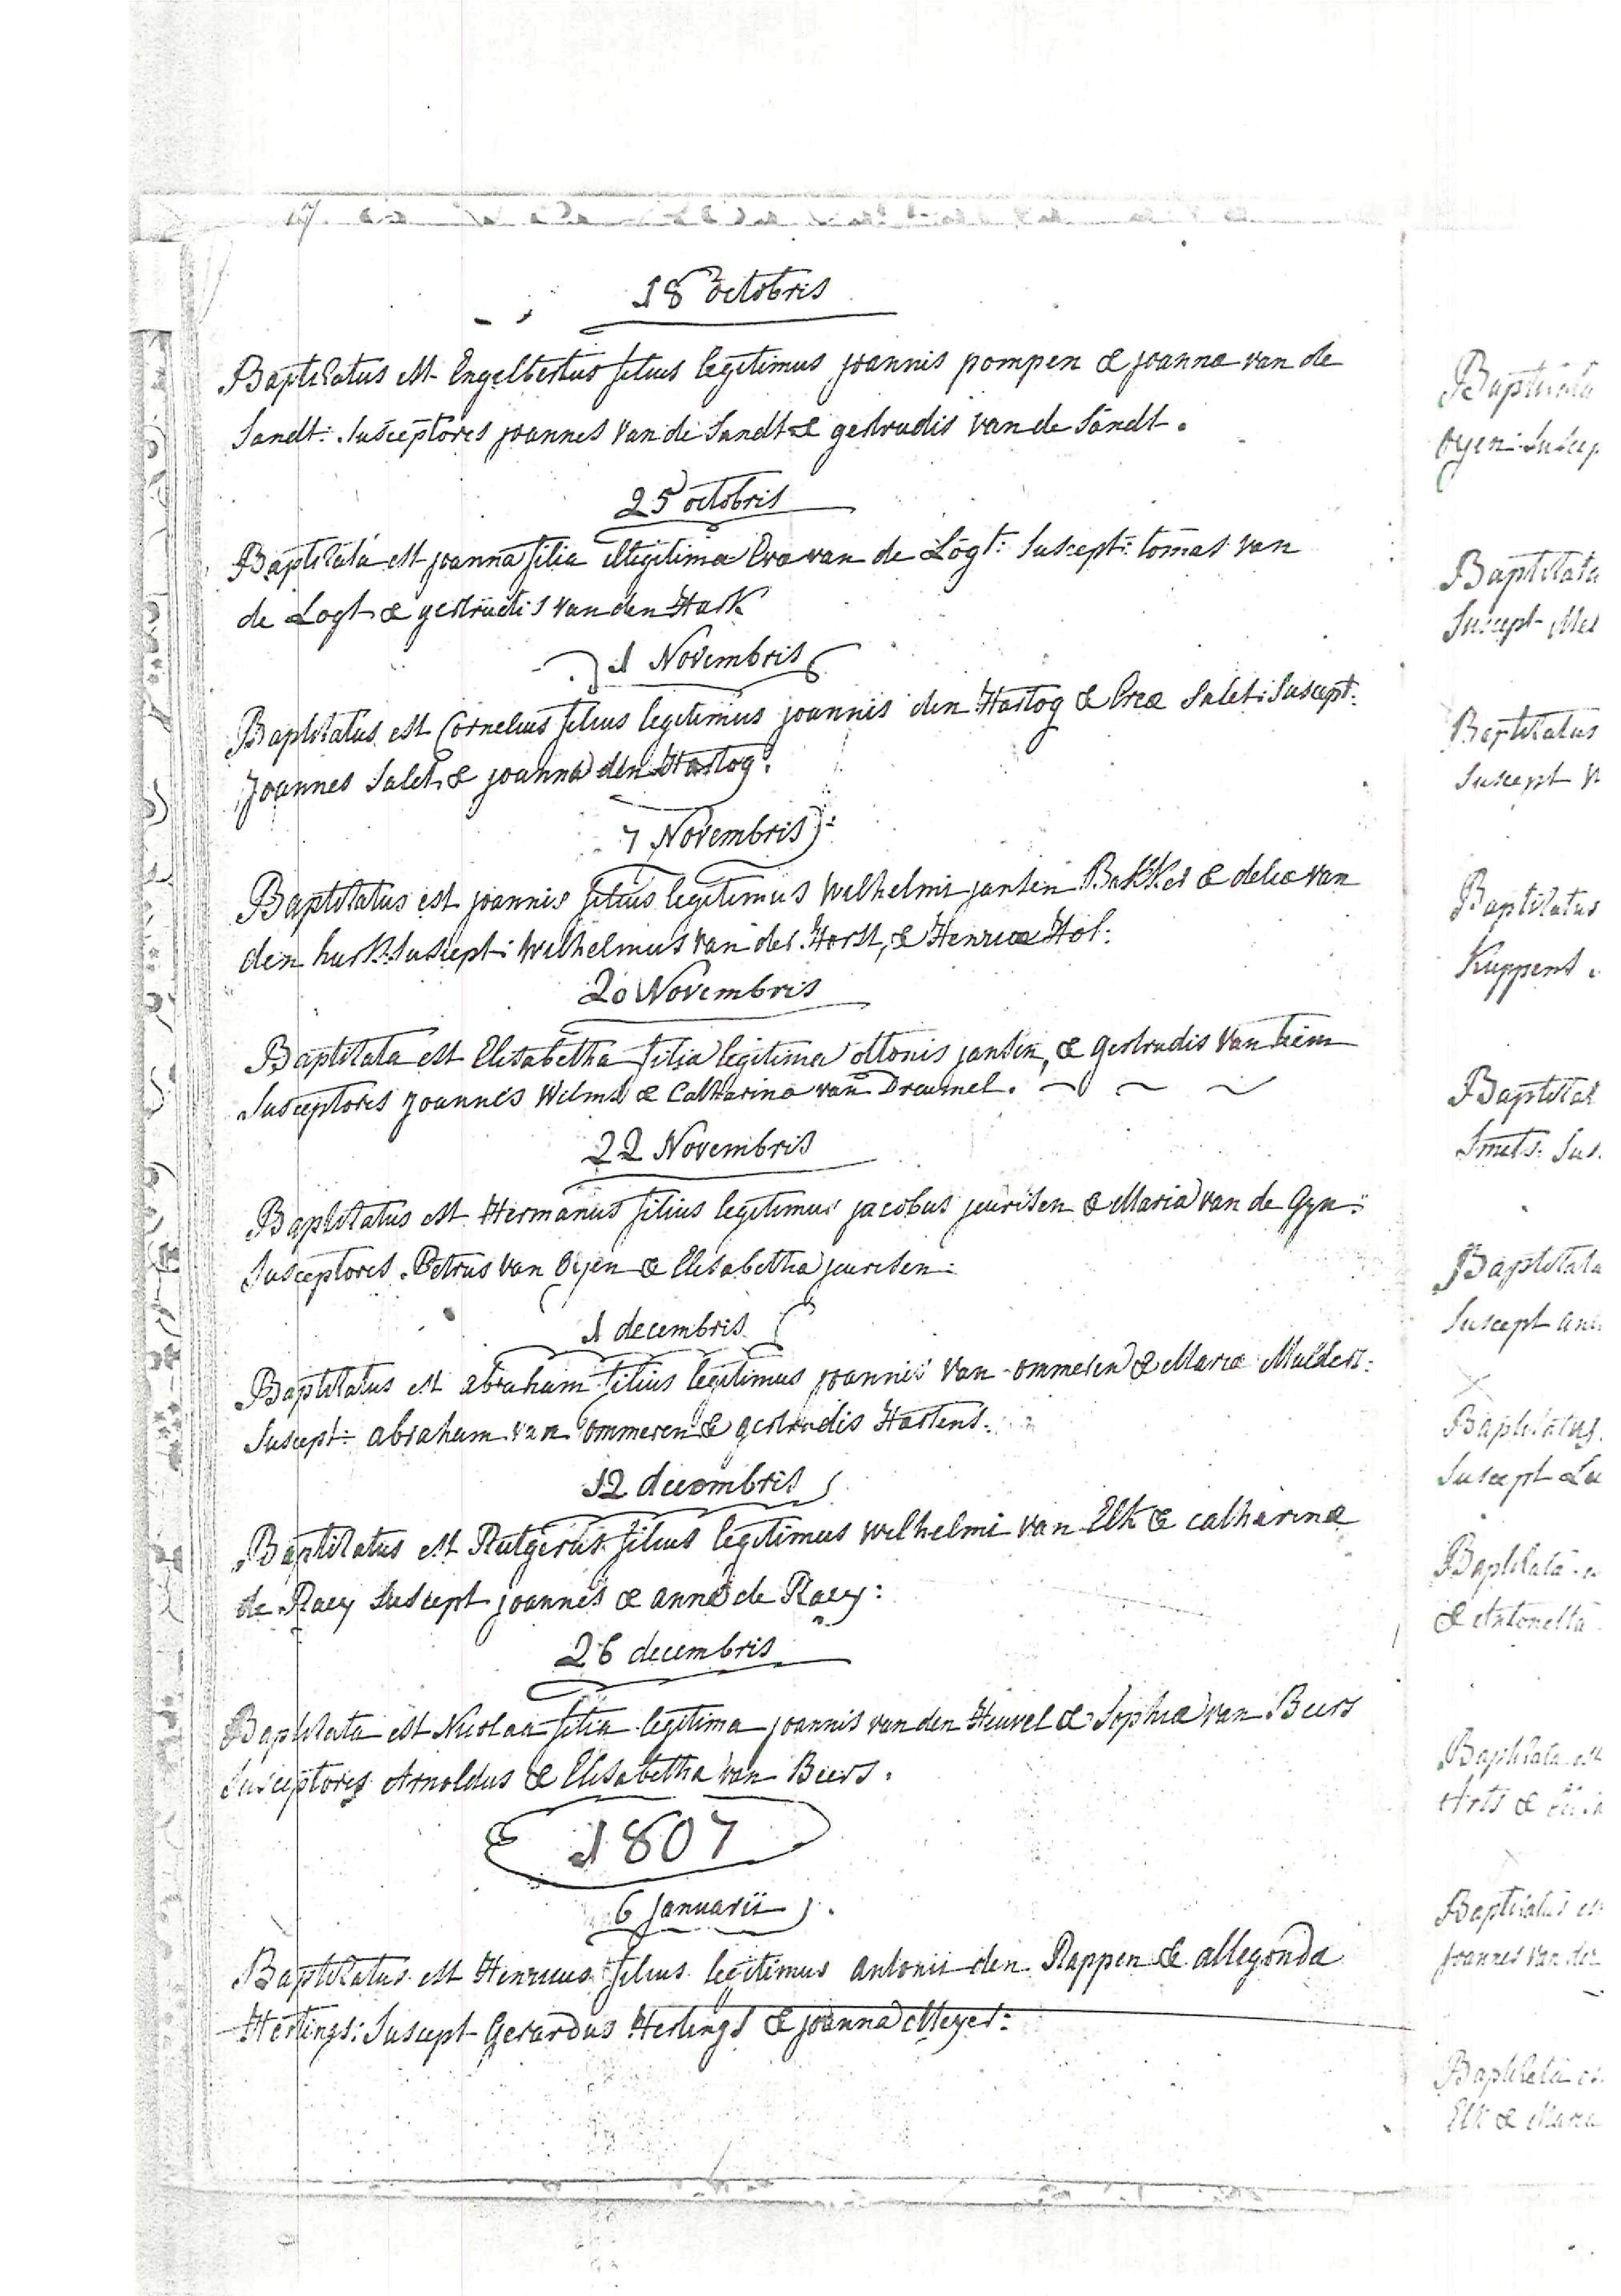 18 octobris
Baptisatus est Engelbertus filius legitimus joannis pompen & joanna van de
Sandt: Susceptores joannes van de Sandt & gertrudis van de Sandt.
25 octobris
Baptisata est joanna filia illegitima Eva van de Logt: Suscept: tomas van
de Logt & gertrudis van den Hurk
1 Novembris
Baptisatus est Cornelius filius legitimus joannis den Hartog & Evæ Salet: Suscept:
Joannes Salet & joanna den Hartog.
7 Novembris
Baptisatus est joannis filius legitimus Wilhelmi jansen Bakker & deliæ van
den hurk: Suscept: Wilhelmus van der Horst, & Henricæ Hol:
20 Novembris
Baptisata est Elisabetha filia legitima ottonis jansen, & gertrudis van tiem
Susceptores joannes Wilms & Catharina van Dreumel.
22 Novembris
Baptisatus est Hermanus filius legitimus jacobus jeurisen & Maria van de Gyn:
Susceptores Petrus van Oijen & Elisabetha jeurisen:
1 decembris
Baptisatus est abraham filius legitimus joannis van ommeren & Mariæ Mulders:
Suscept: abraham van ommeren & gertrudis Hartens:
12 decembris
Baptisatus est Rutgerus filius legitimus wilhelmi van Elk & catharinæ
de Raey Suscept joannes & anna de Raey:
26 decembris
Baptisata est Nicolaa filia legitima joannis van den Heuvel & Sophiæ van Beers
Susceptores Arnoldus & Elisabetha van Beers.
1807
6 Januarii
Baptisatus est Henricus filius legitimus antonii den Rappen & allegonda
Hertings: Suscept Gerardus Hertings & joanna Meyer:
Oyen: Suscep
Baptisata
Suscept Mel
Baptisatus
Suscept
Baptisatus
Kuppens
Smets: Sus
Baptisata
Suscept
Baptisatus
Suscept
Baptisata
& Antonetta
Baptisata est
Arts &
Baptisatus
joannes van der
Baptisata
Elk & Maria